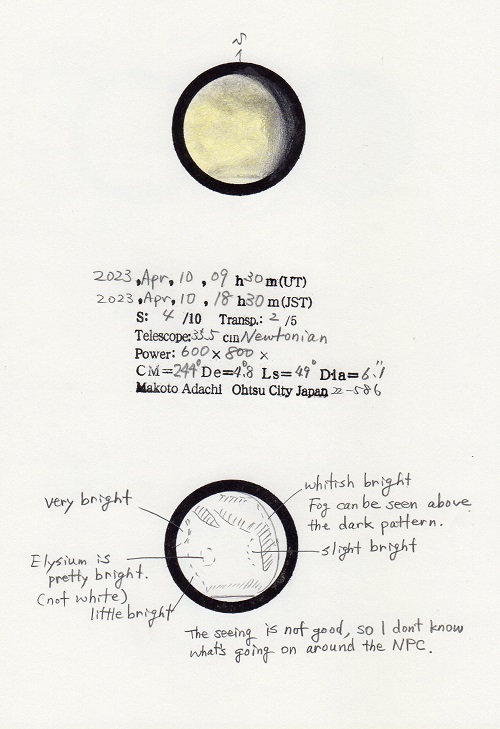 S
2023, Apr, 10, 09 h 30 m (UT)
2023, Apr, 10, 18 h 30 m (JST)
S: 4 /10 Transp.: 2 /5
Telescope: 33.5 cm Newtonian
Power: 600 × 800 ×
CM=244° De=4.8° Ls=49° Dia=6.1"
Makoto Adachi Ohtsu City Japan II-586
very bright
whitish bright
Fog can be seen above
the dark pattern.
slight bright
Elysium is
pretty bright.
(not white)
little bright
The seeing is not good, so I don't know
what's going on around the NPC.